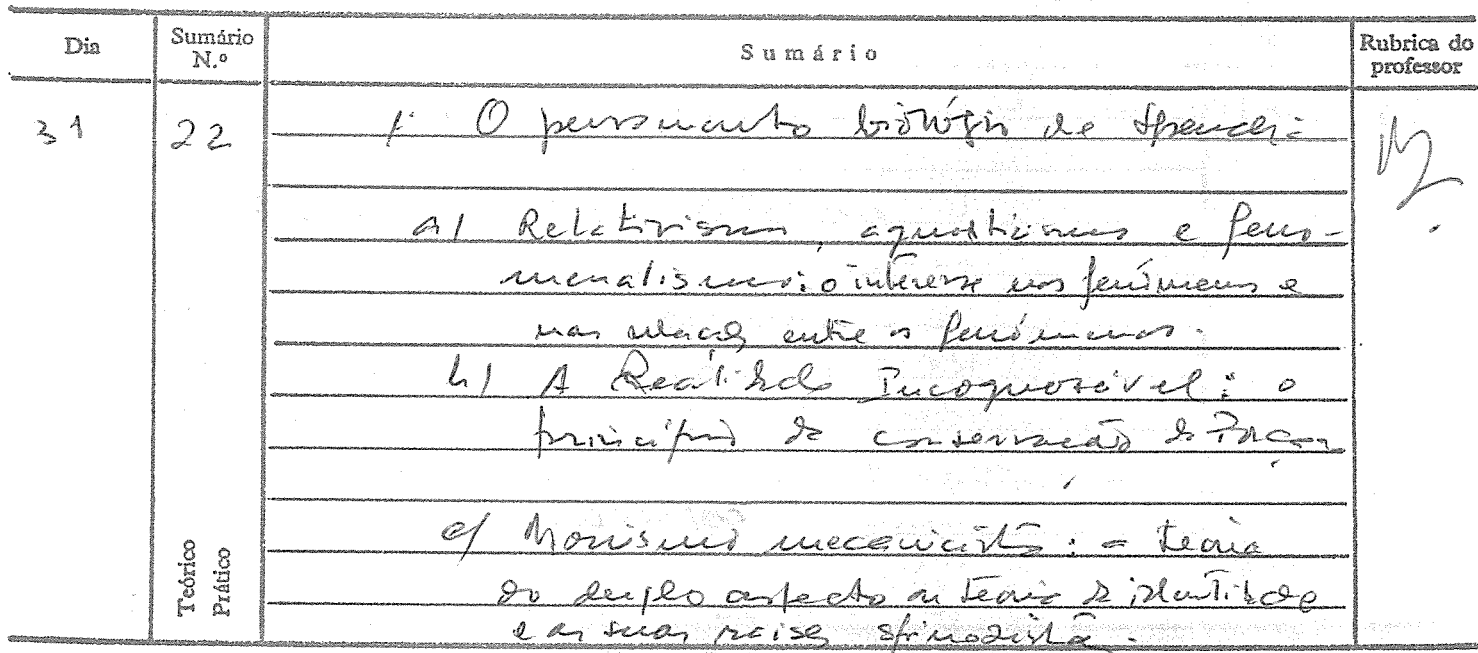 Dia
Sumário N.º
Sumário
Rubrica do professor
31
22
1. O pensamento biológico de Spencer:
a) Relativismo, agnosticismo e feno-
menalismo: o interesse nos fenómenos e
nas relações entre os fenómenos.
b) A Realidade Incognoscível: o
princípio da conservação da Força
c) Monismo mecanicista: a teoria
do duplo aspecto ou teoria da identidade
e as suas raízes spinozistas.
Teórico
Prático